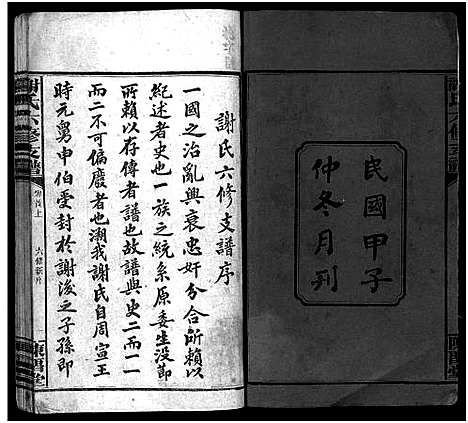 民國甲子
仲冬月刊
謝氏六修支譜序
一國之治亂興衰忠奸分合所賴以
紀述者史也一族之統系原委生没節
所賴以存傳者譜也故譜與史二而一一
而二不可偏廢者也溯我謝氏自周宣王
時元舅申伯受封於謝後之子孫即
謝氏六修支譜
卷首上